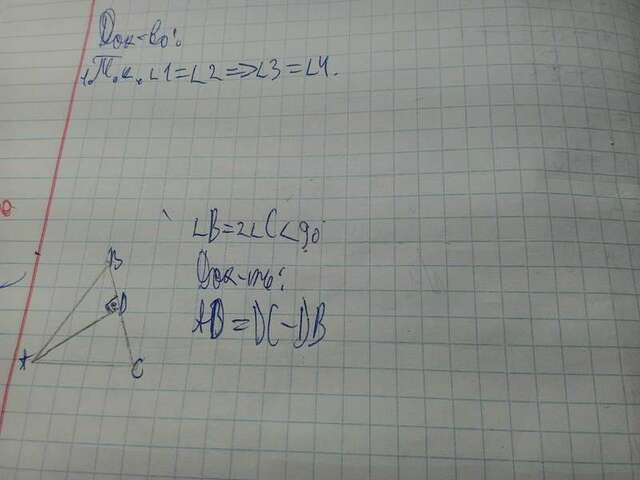 Док-во:
1. Т.к. ∠1=∠2=>∠3=∠4.
∠B=2∠C<90
Док-ть:
AB=DC-DB
B
D
A
C